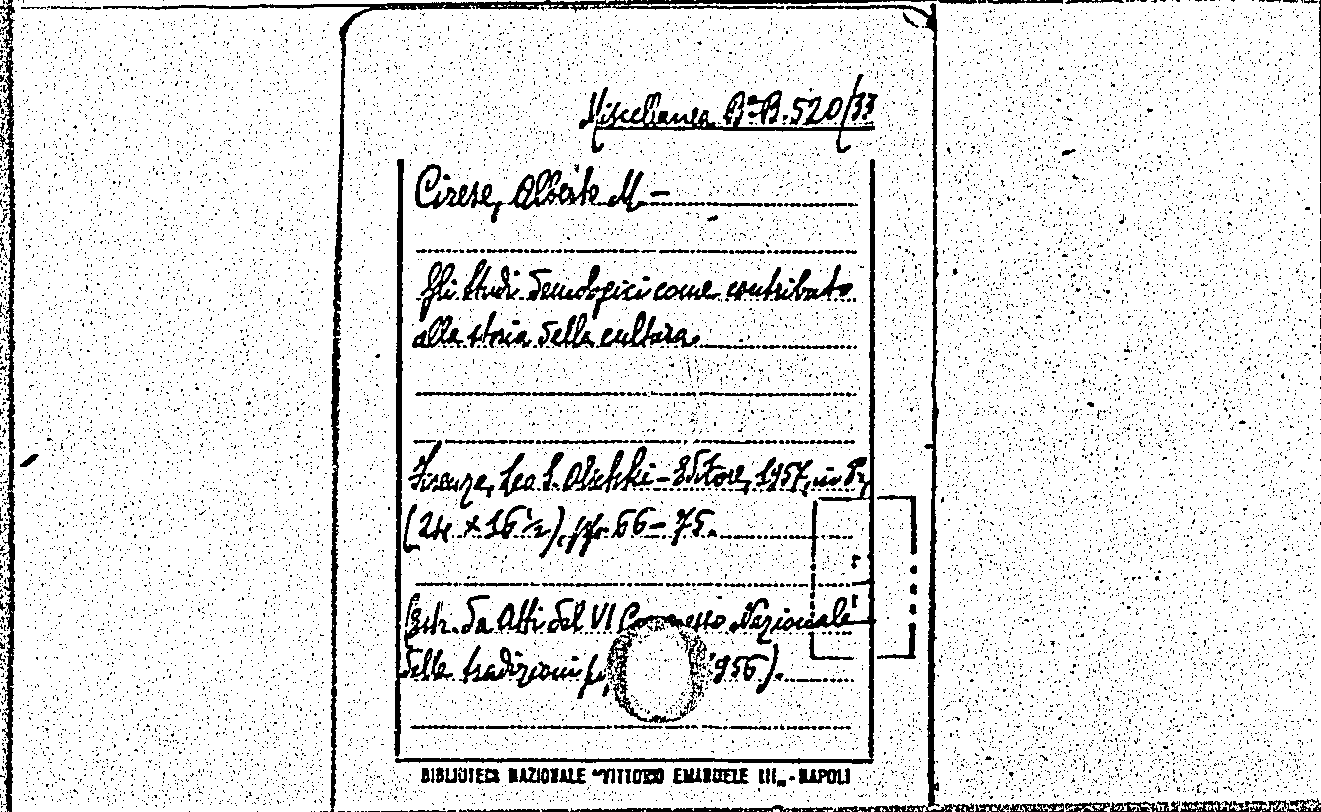 Miscellanea Bª B. 520/33
Cirese, Alberto M —
Gli studi demologici come contributo
alla storia della cultura.
Firenze, Leo S. Olschki - Editore, 1957, in 8º,
(24 x 16½), pp. 66 - 75.
(Estr. da Atti del VI Congresso Nazionale
delle tradizioni 956).
BIBLIOTECA NAZIONALE "VITTORIO EMANUELE III" - NAPOLI